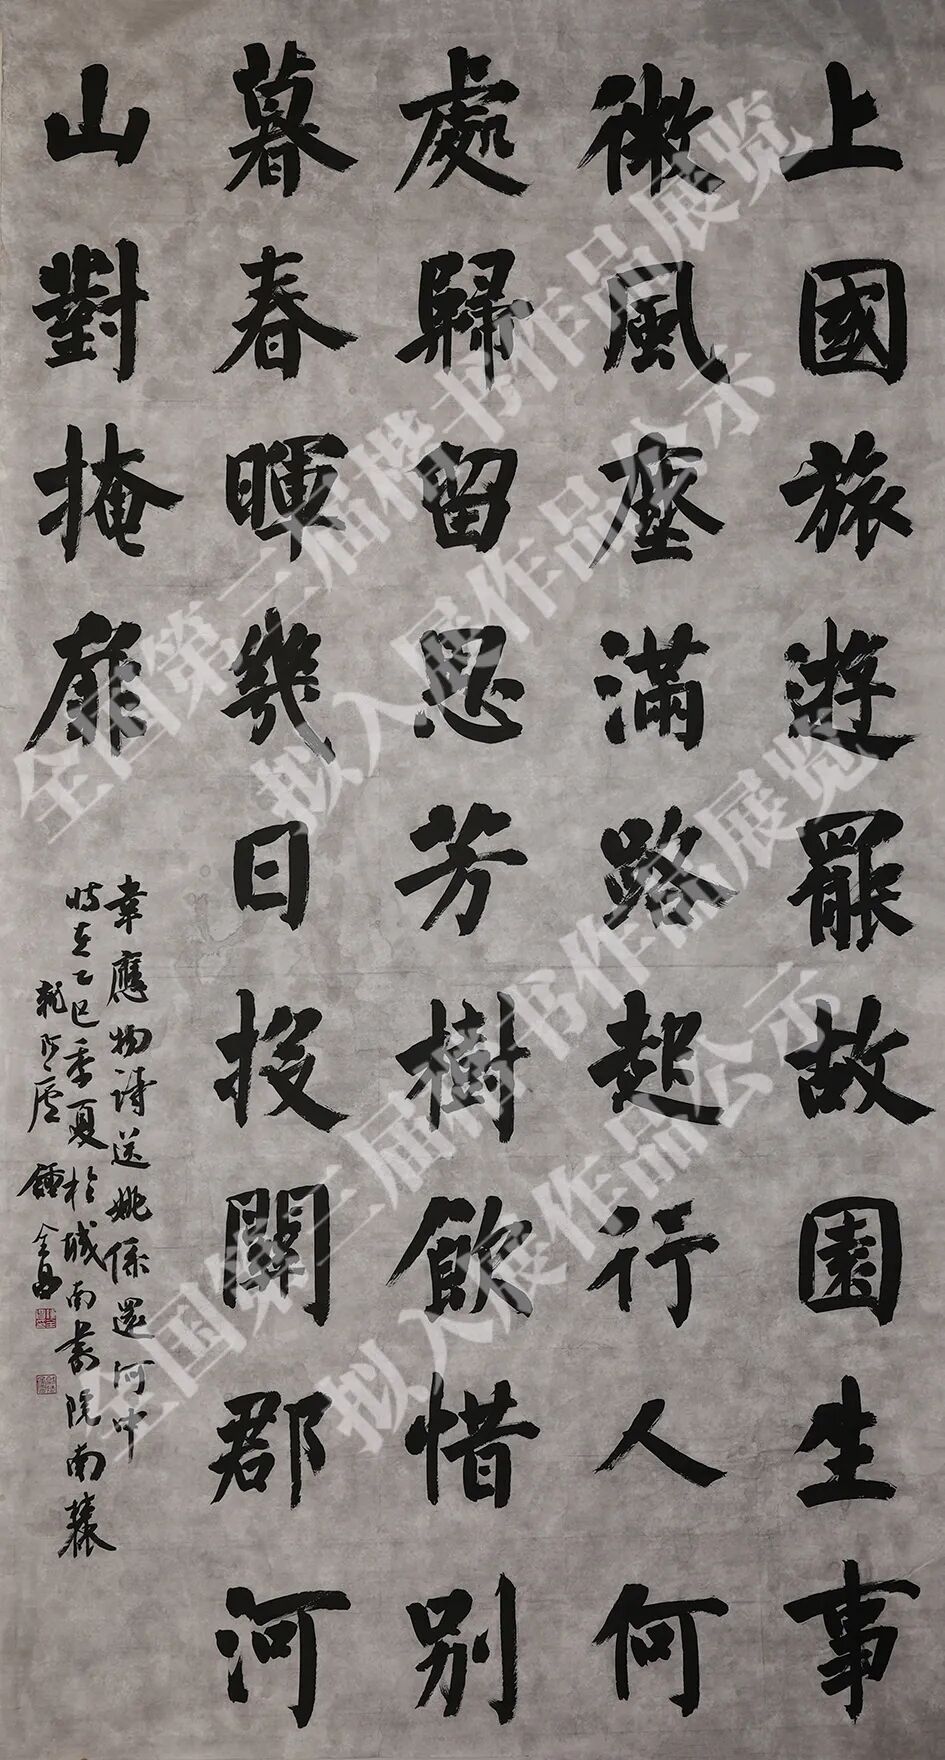 上國旅遊罷故園生事
微風塵滿路起行人何
處歸留思芳樹飲惜別
暮春暉幾日投關郡河
山對掩扉
韋應物詩送姚係還河中
時在乙巳季夏於城南書院南麓
廬 鍾金
全国第三届楷书作品展览
拟入展作品公示
全国第三届楷书作品展览
拟入展作品公示